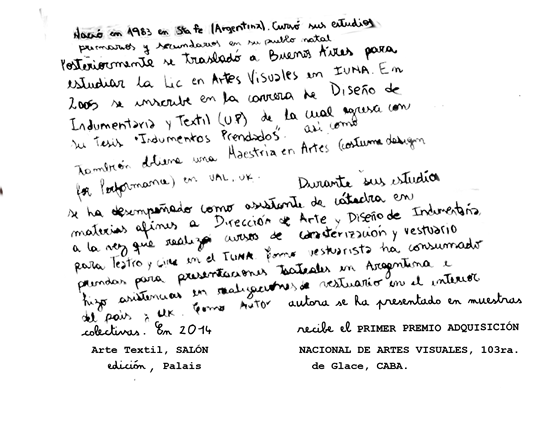 Nació en 1983 en Sta fe (Argentina). Cursó sus estudios
primarios y secundarios en su pueblo natal
Posteriormente se trasladó a Buenos Aires para
estudiar la Lic en Artes Visuales en IUNA. En
2005 se inscribe en la carrera de Diseño de
Indumentaria y Textil (UP) de la cual egresa con
su Tesis "Indumentos Prendados". así como
También obtiene una Maestria en Artes (costume design
for Performance) en UAL, UK. Durante sus estudios
se ha desempeñado como asistente de cátedra en
materias afines a Dirección de Arte y Diseño de Indumentaria
a la vez que realizó cursos de caracterización y vestuario
para Teatro y Cine en el IUNA. Como vestuarista ha consumado
prendas para presentaciones teatrales en Argentina e
hizo asistencias en realizaciones de vestuario en el interior
del pais y UK. Como Autor autora se ha presentado en muestras
colectivas. En 2014 recibe el PRIMER PREMIO ADQUISICIÓN
Arte Textil, SALÓN NACIONAL DE ARTES VISUALES, 103ra.
edición, Palais de Glace, CABA.